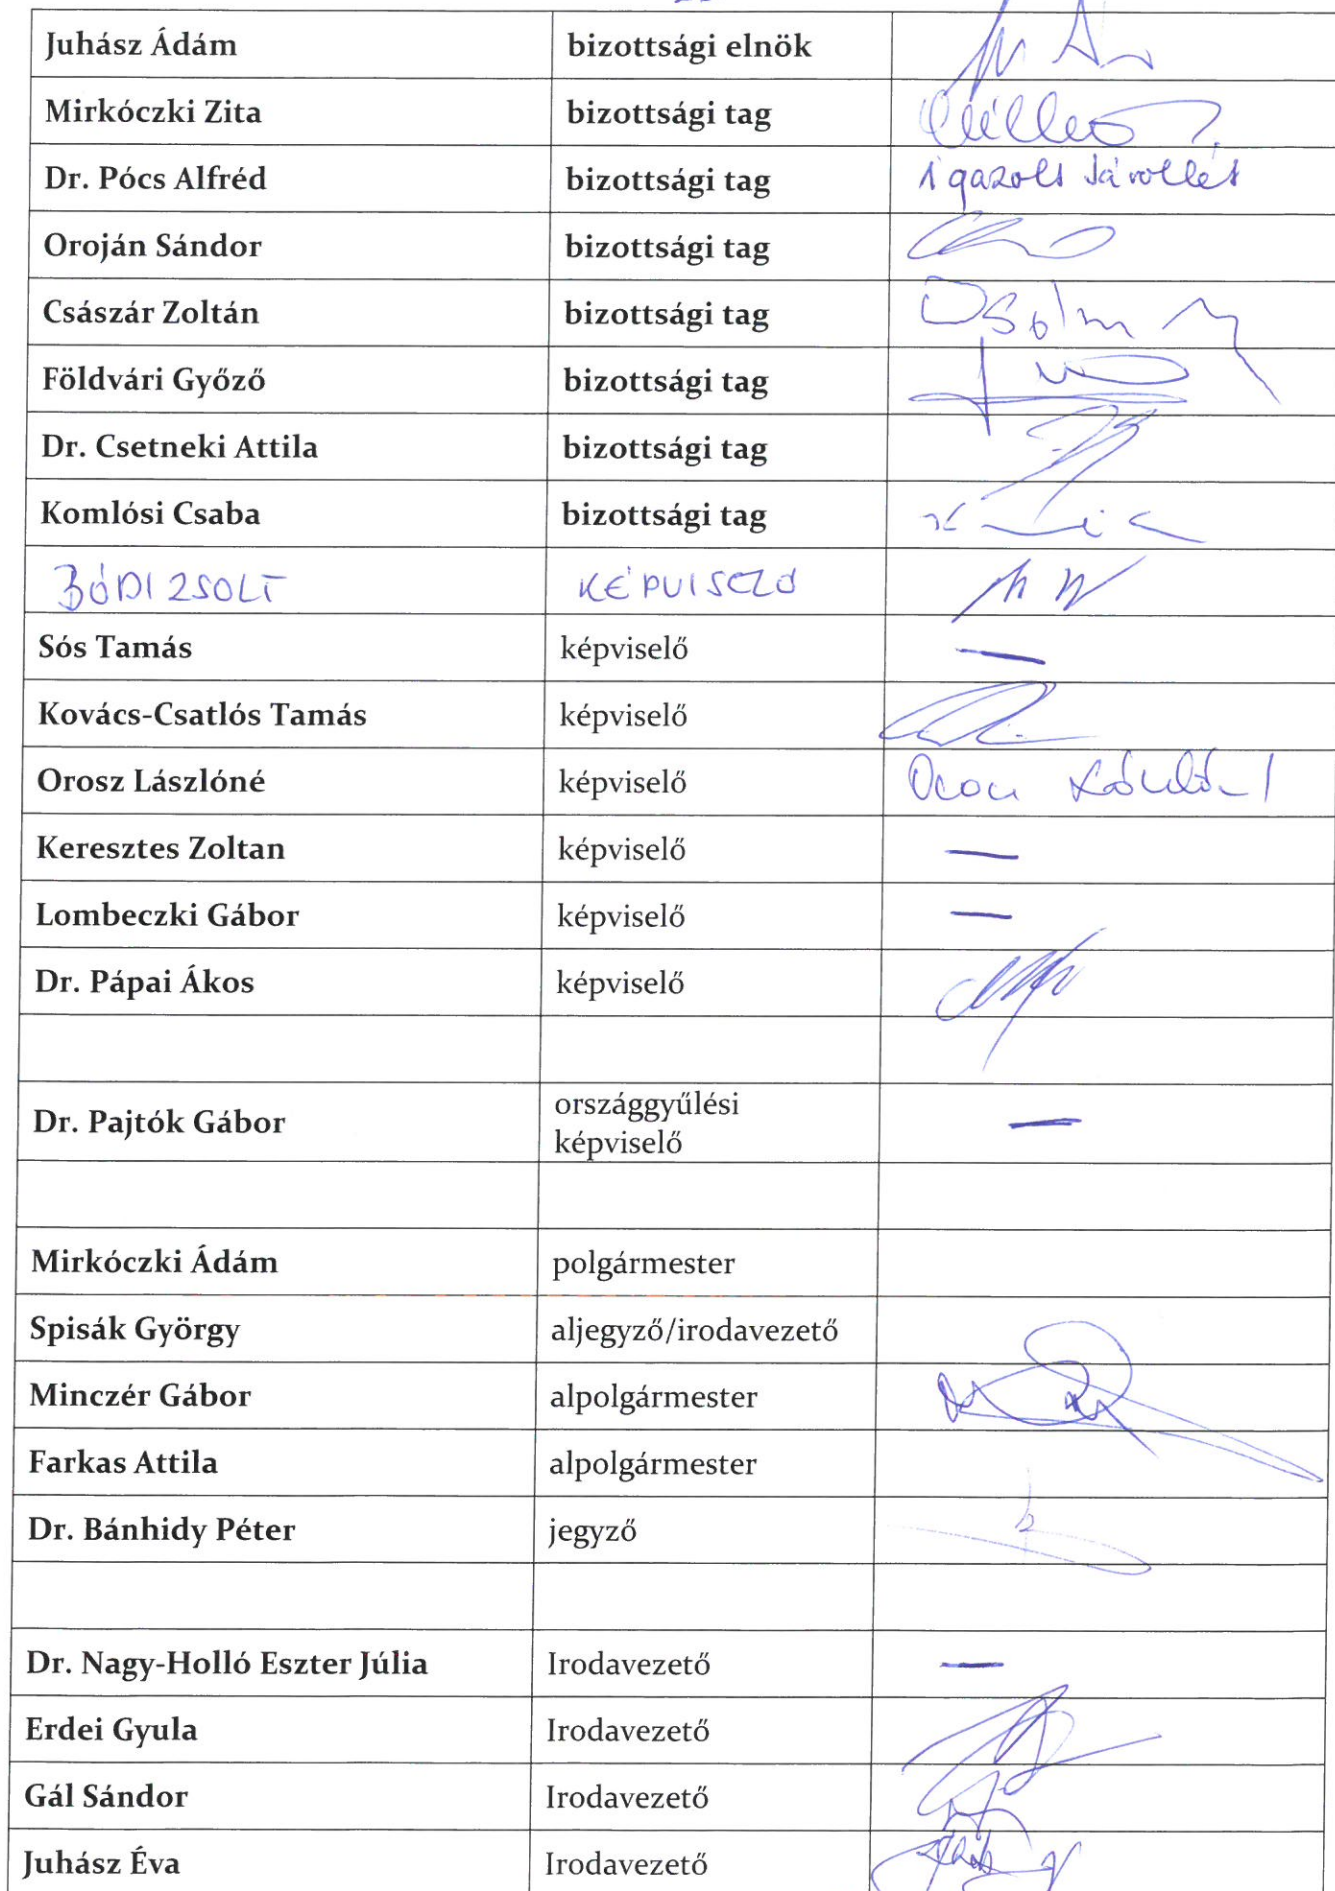 Juhász Ádám bizottsági elnök
Mirkóczki Zita bizottsági tag
Dr. Pócs Alfréd bizottsági tag igazolt távollét
Oroján Sándor bizottsági tag
Császár Zoltán bizottsági tag
Földvári Győző bizottsági tag
Dr. Csetneki Attila bizottsági tag
Komlósi Csaba bizottsági tag
BÓDI ZSOLT KÉPVISELŐ
Sós Tamás képviselő —
Kovács-Csatlós Tamás képviselő
Orosz Lászlóné képviselő
Keresztes Zoltan képviselő —
Lombeczki Gábor képviselő —
Dr. Pápai Ákos képviselő
Dr. Pajtók Gábor országgyűlési
képviselő —
Mirkóczki Ádám polgármester
Spisák György aljegyző/irodavezető
Minczér Gábor alpolgármester
Farkas Attila alpolgármester
Dr. Bánhidy Péter jegyző
Dr. Nagy-Holló Eszter Júlia Irodavezető —
Erdei Gyula Irodavezető
Gál Sándor Irodavezető
Juhász Éva Irodavezető